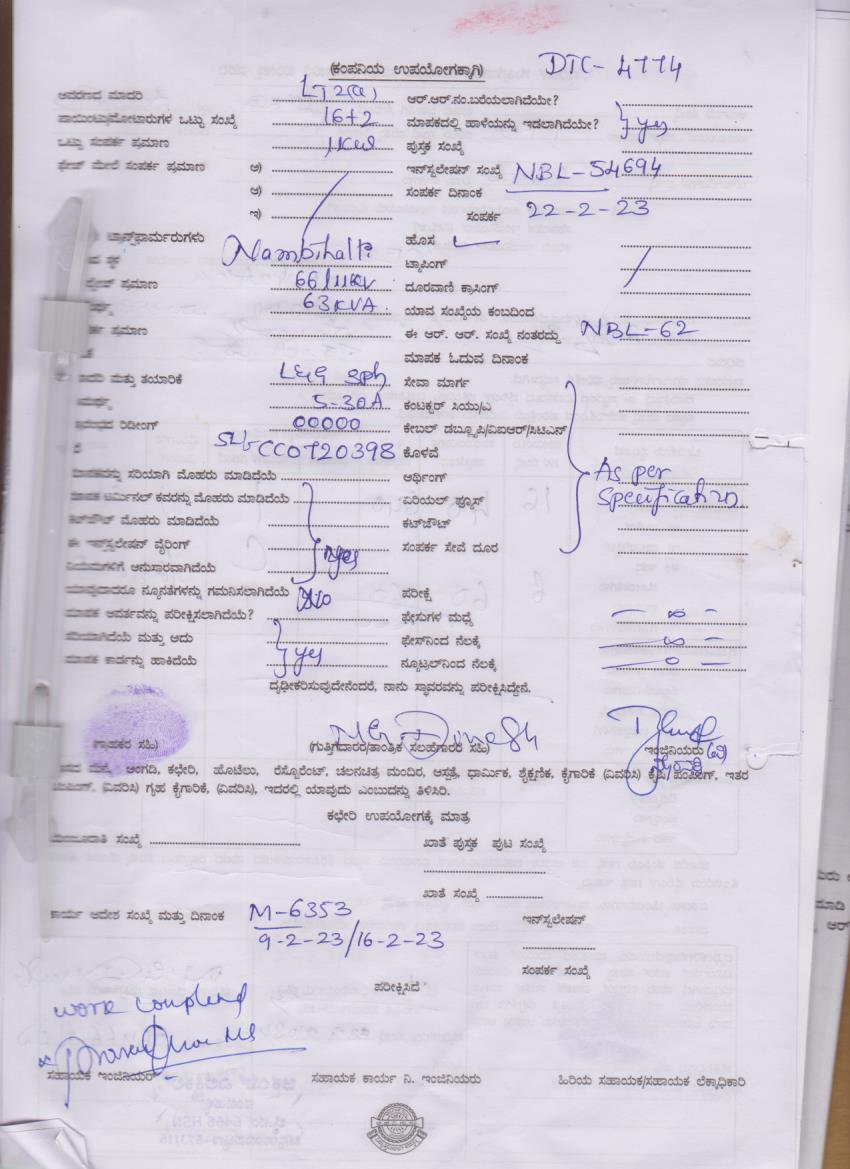 (ಕಂಪನಿಯ ಉಪಯೋಗಕ್ಕಾಗಿ) DTC- 4774
ಆವರಣದ ಮಾದರಿ LT 2(a) ಆರ್.ಆರ್.ನಂ.ಬರೆಯಲಾಗಿದೆಯೇ?
ಪಾಯಿಂಟು/ಮೋಟಾರುಗಳ ಒಟ್ಟು ಸಂಖ್ಯೆ 16+2 ಮಾಪಕದಲ್ಲಿ ಹಾಳೆಯನ್ನು ಇಡಲಾಗಿದೆಯೇ? yes
ಒಟ್ಟು ಸಂಪರ್ಕ ಪ್ರಮಾಣ 1KW ಪುಸ್ತಕ ಸಂಖ್ಯೆ
ಫೇಜ್ ಮೇಲೆ ಸಂಪರ್ಕ ಪ್ರಮಾಣ ಅ) ಇನ್‌ಸ್ಟಲೇಷನ್ ಸಂಖ್ಯೆ NBL-54694
ಆ) ಸಂಪರ್ಕ ದಿನಾಂಕ
ಇ) ಸಂಪರ್ಕ 22-2-23
ಟ್ರಾನ್ಸ್‌ಫಾರ್ಮರುಗಳು Nambihalli ಹೊಸ
ಟ್ಯಾಪಿಂಗ್
ಪ್ರಮಾಣ 66/11KV ದೂರವಾಣಿ ಕ್ರಾಸಿಂಗ್
63KVA ಯಾವ ಸಂಖ್ಯೆಯ ಕಂಬದಿಂದ
ಪ್ರಮಾಣ ಈ ಆರ್. ಆರ್. ಸಂಖ್ಯೆ ನಂತರದ್ದು NBL-62
ಮಾಪಕ ಓದುವ ದಿನಾಂಕ
ಮತ್ತು ತಯಾರಿಕೆ L&G ಸೇವಾ ಮಾರ್ಗ
5-30A ಕಂಟಕ್ಟರ್ ಸಿಯು/ಎ
ರಿಡೀಂಗ್ 00000 ಕೇಬಲ್ ಡಬ್ಲ್ಯೂಪಿ/ವಿಐಆರ್/ಸಿಟಿಎನ್
CC0720398 ಕೊಳವೆ
ಮಾಪಕವನ್ನು ಸರಿಯಾಗಿ ಮೊಹರು ಮಾಡಿದೆಯೆ ಅರ್ಥಿಂಗ್ As per
ಮಾಪಕ ಟರ್ಮಿನಲ್ ಕವರನ್ನು ಮೊಹರು ಮಾಡಿದೆಯೆ ಏರಿಯಲ್ ಫ್ಯೂಸ್ Specification
ಕಟ್‌ಔಟ್ ಮೊಹರು ಮಾಡಿದೆಯೆ ಕಟ್‌ಔಟ್
ಈ ಇನ್‌ಸ್ಟಲೇಷನ್ ವೈರಿಂಗ್ yes ಸಂಪರ್ಕ ಸೇವೆ ದೂರ
ನಿಯಮಗಳಿಗೆ ಅನುಸಾರವಾಗಿದೆಯೆ
ಯಾವುದಾದರೂ ನ್ಯೂನತೆಗಳನ್ನು ಗಮನಿಸಲಾಗಿದೆಯೆ No ಪರೀಕ್ಷೆ
ಮಾಪಕ ಆವರ್ತವನ್ನು ಪರೀಕ್ಷಿಸಲಾಗಿದೆಯೆ? ಫೇಸುಗಳ ಮಧ್ಯೆ – ∞ –
ಸರಿಯಾಗಿದೆಯೆ ಮತ್ತು ಅದು ಫೇಸ್‌ನಿಂದ ನೆಲಕ್ಕೆ – ∞ –
ಮಾಪಕ ಕಾರ್ಡನ್ನು ಹಾಕಿದೆಯೆ yes ನ್ಯೂಟ್ರಲ್‌ನಿಂದ ನೆಲಕ್ಕೆ – 0 –
ದೃಢೀಕರಿಸುವುದೇನೆಂದರೆ, ನಾನು ಸ್ಥಾವರವನ್ನು ಪರೀಕ್ಷಿಸಿದ್ದೇನೆ.
(ಗ್ರಾಹಕರ ಸಹಿ) (ಗುತ್ತಿಗೆದಾರರ/ತಾಂತ್ರಿಕ ಸಲಹೆಗಾರರ ಸಹಿ) ಇಂಜಿನಿಯರು (ವಿ)
ಅಂಗಡಿ, ಕಛೇರಿ, ಹೊಟೇಲು, ರೆಸ್ಟೋರೆಂಟ್, ಚಲನಚಿತ್ರ ಮಂದಿರ, ಆಸ್ಪತ್ರೆ, ಧಾರ್ಮಿಕ, ಶೈಕ್ಷಣಿಕ, ಕೈಗಾರಿಕೆ (ವಿವರಿಸಿ) ಕೃಷಿ/ ಪಂಪಿಂಗ್, ಇತರ
(ವಿವರಿಸಿ) ಗೃಹ ಕೈಗಾರಿಕೆ, (ವಿವರಿಸಿ), ಇದರಲ್ಲಿ ಯಾವುದು ಎಂಬುದನ್ನು ತಿಳಿಸಿರಿ.
ಕಛೇರಿ ಉಪಯೋಗಕ್ಕೆ ಮಾತ್ರ
ಸಂಖ್ಯೆ ಖಾತೆ ಪುಸ್ತಕ ಪುಟ ಸಂಖ್ಯೆ
ಖಾತೆ ಸಂಖ್ಯೆ
ಕಾರ್ಯ ಆದೇಶ ಸಂಖ್ಯೆ ಮತ್ತು ದಿನಾಂಕ M-6353 ಇನ್‌ಸ್ಟಲೇಷನ್
9-2-23/16-2-23
ಸಂಪರ್ಕ ಸಂಖ್ಯೆ
ಪರೀಕ್ಷಿಸಿದೆ
work
ಸಹಾಯಕ ಇಂಜಿನಿಯರ್ ಸಹಾಯಕ ಕಾರ್ಯ ನಿ. ಇಂಜಿನಿಯರು ಹಿರಿಯ ಸಹಾಯಕ/ಸಹಾಯಕ ಲೆಕ್ಕಾಧಿಕಾರಿ